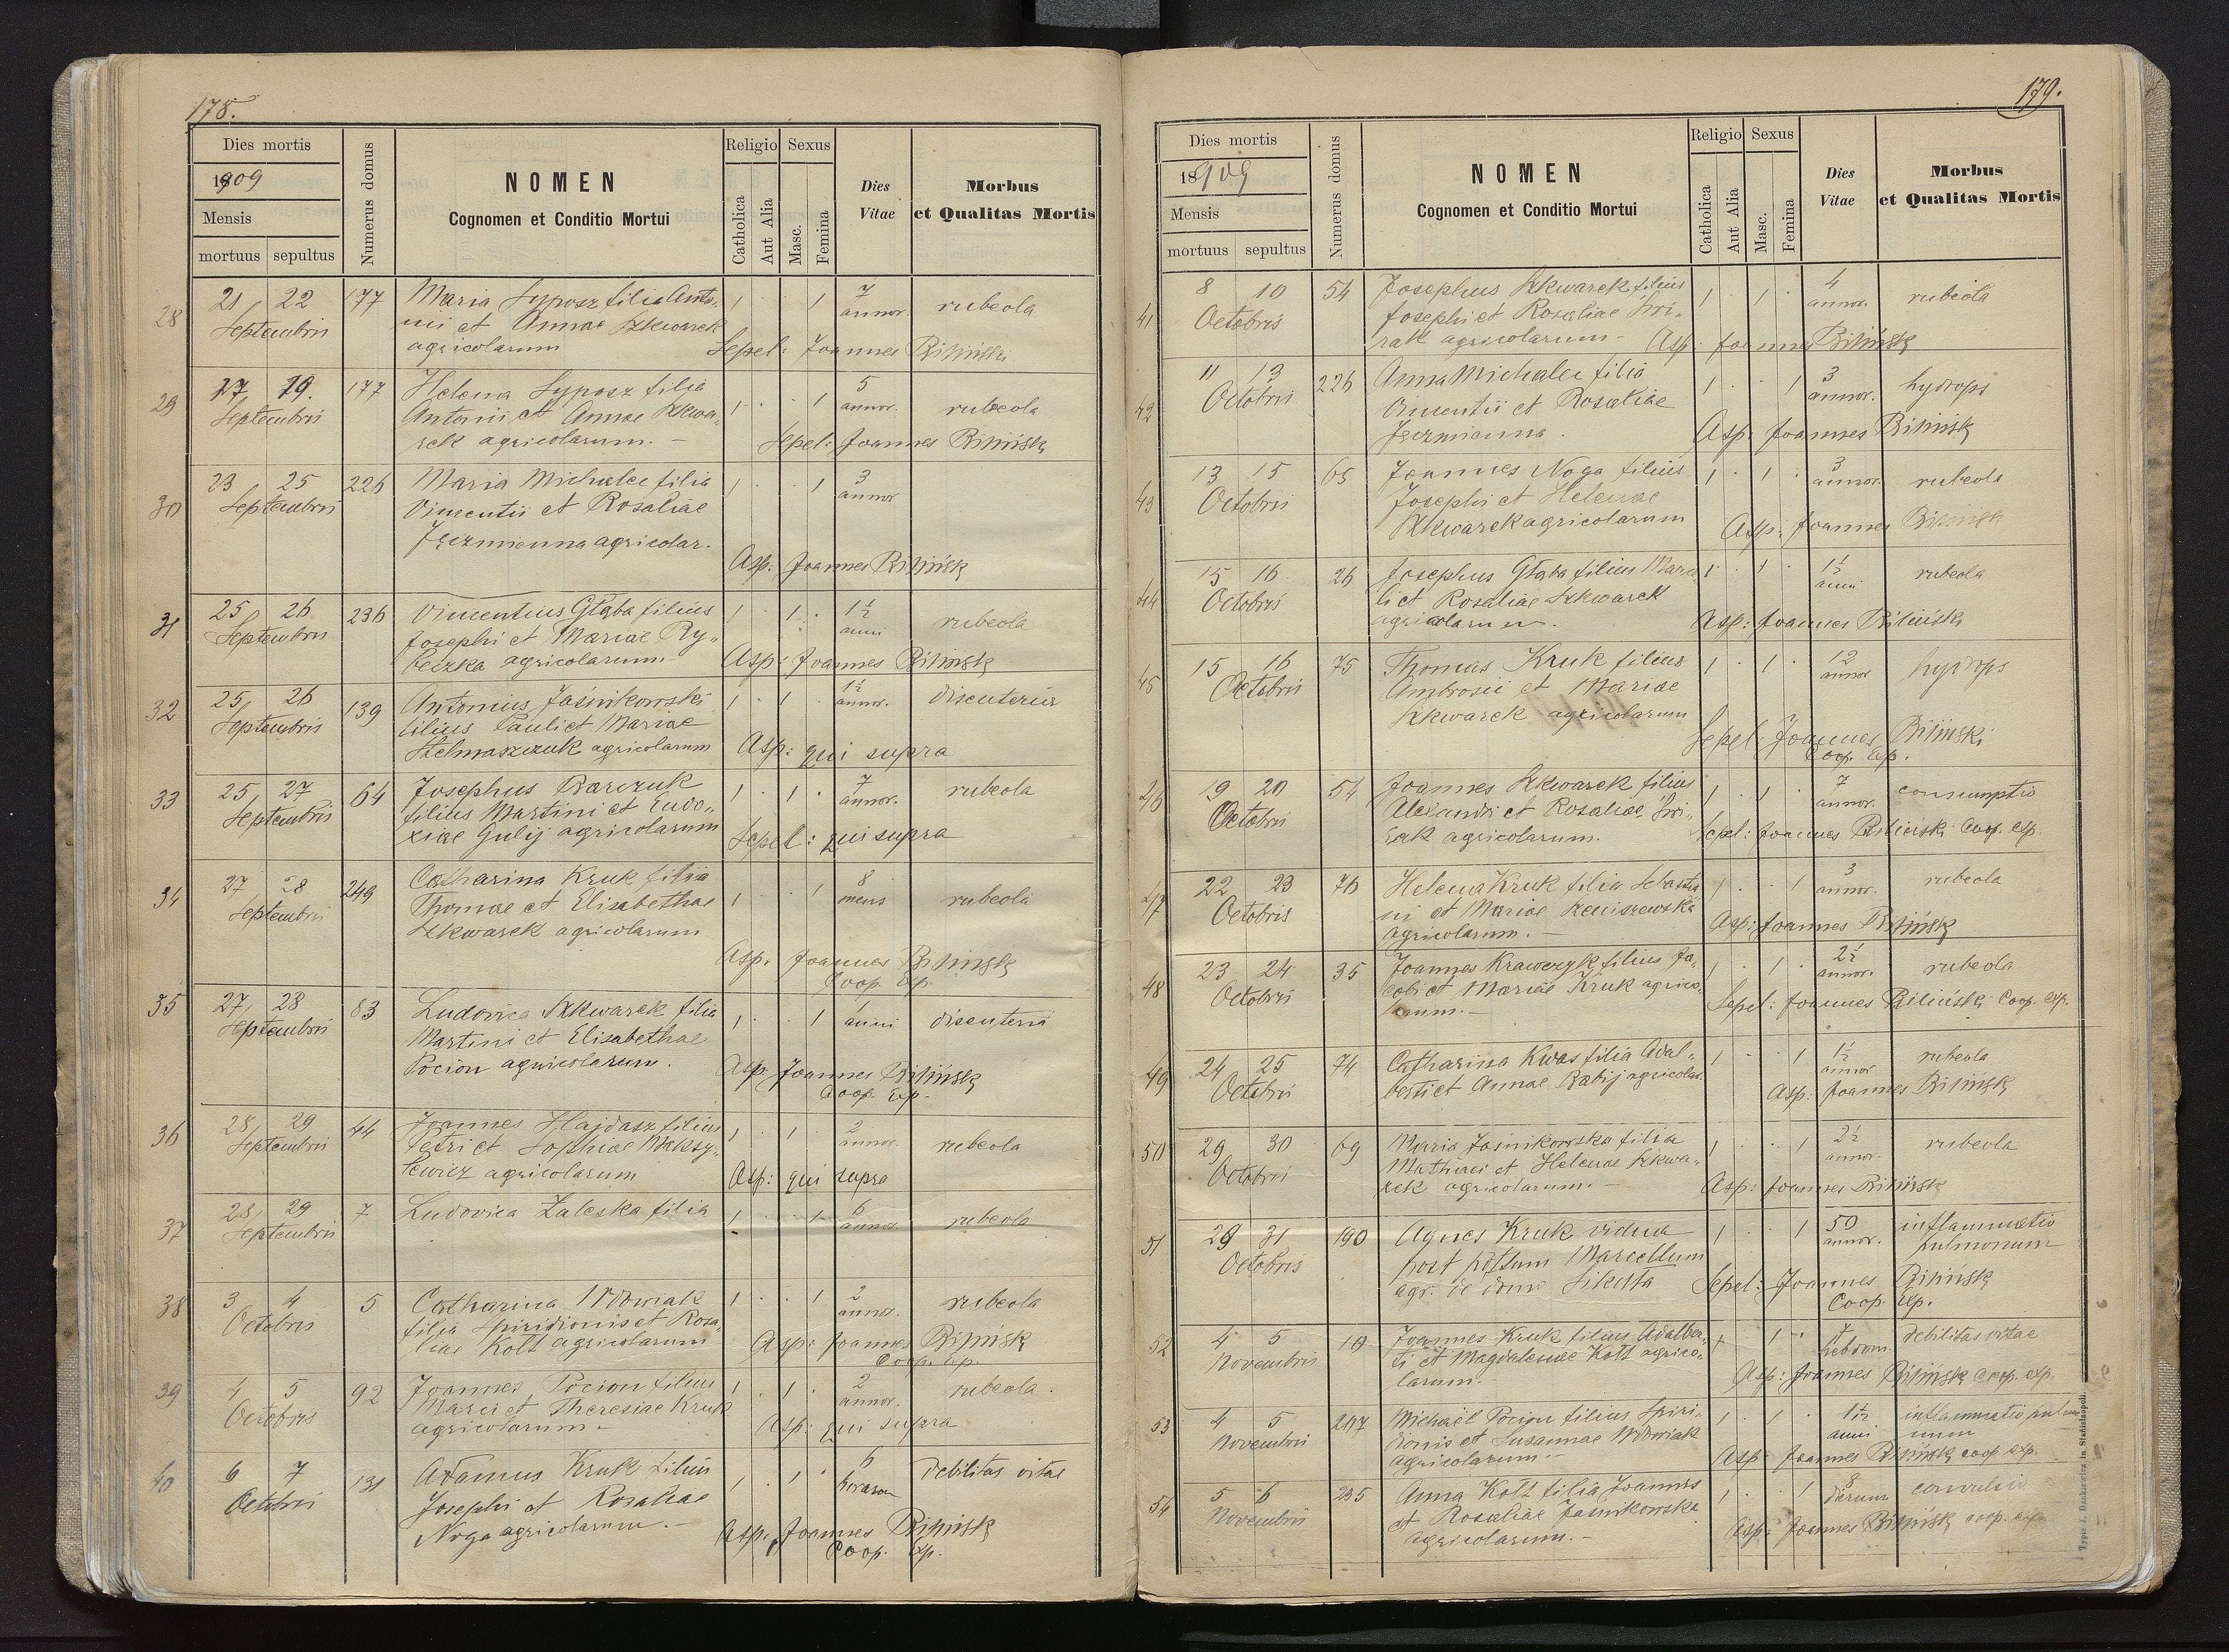 178.
Dies mortis
1909
Mensis
mortuus sepultus
Numerus domus
NOMEN
Cognomen et Conditio Mortui
Religio
Catholica
Aut Alia
Sexus
Masc.
Femina
Dies
Vitae
Morbus
et Qualitas Mortis
28 21 22 177 Maria Syposz filia Anto- 1 1 7 rubeola
Septembris nii et Annae Szkwarek annor.
agricolarum Sepel: Joannes Biliński
29 27 29. 177 Helena Syposz filia 5
Septembris Antonii et Annae Szkwa- 1 1 annor. rubeola
rek agricolarum. — Sepel: Joannes Biliński
30 23 25 226 Maria Michalec filia 1 1 3
Septembris Vincentii et Rosaliae annor
Jęczmienna agricolar.
Asp: Joannes Biliński
31 25 26 236 Vincentius Głąba filius 1 1 1½ rubeola
Septembris Josephi et Mariae Ry- anni
beczka agricolarum Asp: Joannes Biliński
32 25 26 139 Antonius Jaśnikowski 1 1 1½ disenteria
Septembris filius Pauli et Mariae annor.
Stelmaszczuk agricolarum Asp: qui supra
33 25 27 64 Josephus Barczuk 1 1 7 rubeola
Septembris filius Martini et Eudo- annor.
xiae Gulij agricolarum Sepel: qui supra
34 27 28 249 Catharina Kruk filia 8
Septembris Thomae et Elisabethae 1 1 mens rubeola
Szkwarek agricolarum
Asp. Joannes Biliński
Coop. Exp.
35 27 28 83 Ludovica Szkwarek filia 1 1 1 disenteria
Septembris Martini et Elisabethae anni
Pocion agricolarum. Asp. Joannes Biliński
Coop. Exp.
36 28 29 44 Joannes Hajdasz filius 1 1 2
Septembris Petri et Sophiae Maksy- annor. rubeola
lewicz agricolarum Asp: qui supra
37 28 29 7 Ludovica Zaleska filia 1 1 6 rubeola
Septembris annor.
38 3 4 5 Catharina Wdowiak 1 1 2 rubeola
Octobris filia Spiridionis et Rosa- annor.
liae Kott agricolarum Asp: Joannes Biliński
Coop. Exp.
39 4 5 92 Joannes Pocion filius 1 1 2 rubeola.
Octobris Marci et Theresiae Kruk annor.
agricolarum. Asp: qui supra
40 6 7 131 Adamus Kruk filius 1 1 6 debilitas vitae
Octobris Josephi et Rosaliae horarum
Noga agricolarum. — Asp. Joannes Biliński
Coop. Exp.
179.
Dies mortis
18909
Mensis
mortuus sepultus
Numerus domus
NOMEN
Cognomen et Conditio Mortui
Religio
Catholica
Aut Alia
Sexus
Masc.
Femina
Dies
Vitae
Morbus
et Qualitas Mortis
41 8 10 54 Josephus Szkwarek filius 1 1 4 rubeola
Octobris Josephi et Rosaliae Świ- annor.
rak agricolarum - Asp: Joannes Biliński
42 11 13 226 Anna Michalec filia 1 1 3 hydrops
Octobris Vincentii et Rosaliae annor.
Jęczmienna. Asp: Joannes Biliński
43 13 15 65 Joannes Noga filius 1 1 3 rubeola
Octobris Josephi et Helenae annor.
Szkwarek agricolarum Asp: Joannes Biliński
44 15 16 26 Josephus Głąba filius Marce- 1 1 1½ rubeola
Octobris li et Rosaliae Szkwarek anni
agricolarum. Asp: Joannes Biliński
45 15 16 75 Thomas Kruk filius 1 1 12 hydrops
Octobris Ambrosii et Mariae annor
Szkwarek agricolarum
Sepel: Joannes Biliński
Coop. Exp.
46 19 20 54 Joannes Szkwarek filius 1 1 7 consumptio
Octobris Alexandri et Rosaliae Świ- annor.
rak agricolarum. Sepel: Joannes Biliński Coop. exp.
47 22 23 76 Helena Kruk filia Sebastia- 1 1 3 rubeola
Octobris ni et Mariae annor.
agricolarum. — Asp: Joannes Biliński
48 23 24 35 Joannes Krawczyk filius Ja- 1 1 2½ rubeola
Octobris cobi et Mariae Kruk agrico- annor.
larum. — Sepel: Joannes Biliński Coop. exp.
49 24 25 74 Catharina Kwas filia Adal- 1 1 1½ rubeola
Octobris berti et Annae Babij agricolar. annor
Asp: Joannes Biliński
50 29 30 69 Maria Jaśnikowska filia 1 1 2½ rubeola
Octobris Mathaei et Helenae Szkwa- annor.
rek agricolarum. — Asp: Joannes Biliński
51 29 31 190 Agnes Kruk vidua 1 1 50 inflammatio
Octobris post Marcellum annor. pulmonum
agr. de domo Sikuta Sepel: Joannes Biliński
Coop. Exp.
52 4 5 10 Joannes Kruk filius Adalber- 1 1 7 debilitas vitae
Novembris ti et Magdalenae Kott agrico- hebdom.
larum. — Asp: Joannes Biliński Coop. exp.
53 4 5 247 Michaël Pocion filius Spiri- 1 1 1½ inflammatio pulmo-
Novembris dionis et Susannae Wdowiak anni num
agricolarum. — Asp: Joannes Biliński coop exp.
54 5 6 235 Anna Kott filia Joannis 1 1 8
Novembris et Rosaliae Jaśnikowska dierum
agricolarum. — Asp: Joannes Biliński coop. exp.
Typis J. Dankiewicz in Stanislaopoli.